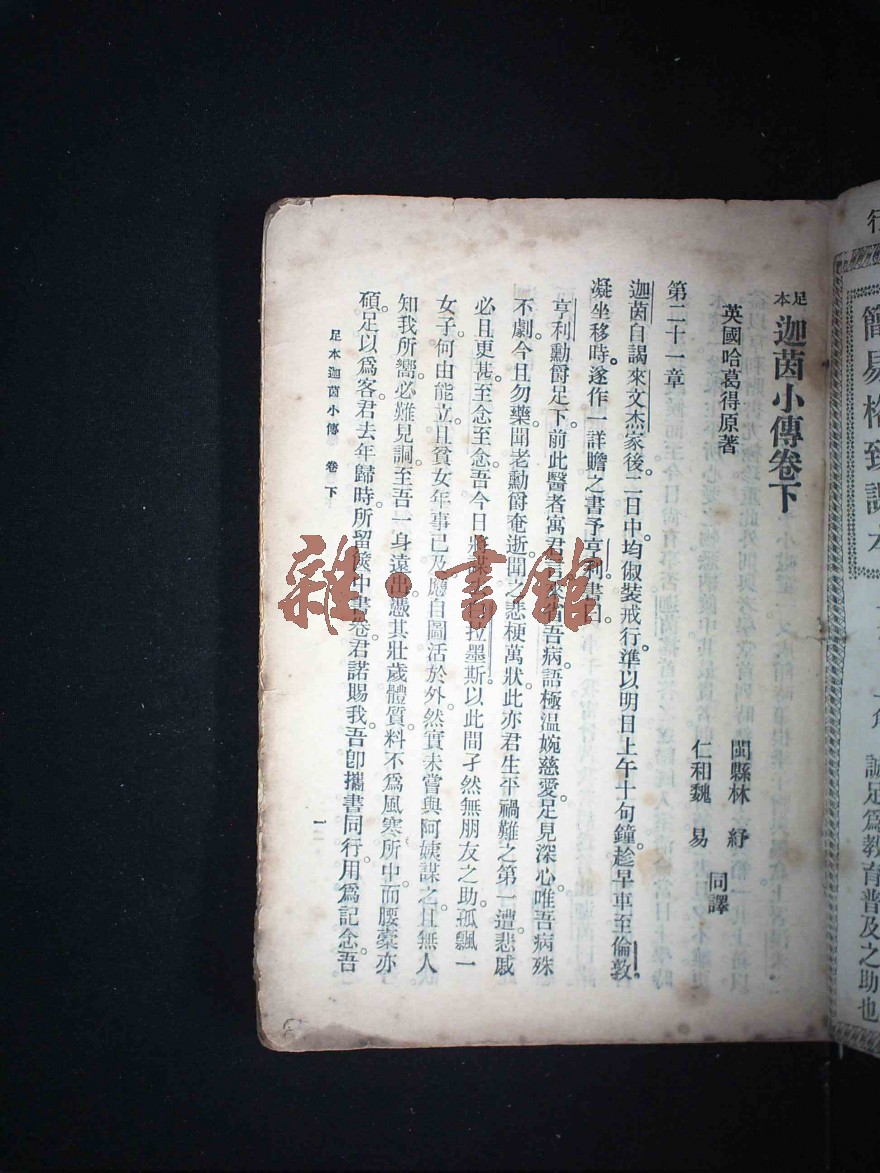 足本 迦茵小傳卷下
英國哈葛得原著
閩縣林紓
仁和魏易
同譯
第二十一章
迦茵自謁來文杰家後。二日中均俶裝戒行。準以明日上午十句鐘。趁早車至倫敦。
凝坐移時。遂作一詳贍之書予亨利。書曰。
亨利勳爵足下。前此醫者寓君言來省吾病。語極溫婉慈愛。足見深心。唯吾病殊
不劇。今且勿藥。聞老勳爵奄逝。聞之悲梗萬狀。此亦君生平禍難之第一遭。悲戚
必且更甚。至念至念。吾今日將謀者拉墨斯。以此間孑然無朋友之助。孤飄一
女子。何由能立。且貧女年事已及。應自圖活於外。然實未嘗與阿姨謀之。且無人
知我所嚮。必難見詗。至吾一身遠出。憑其壯歲體質。料不爲風寒所中。而腰橐亦
碩。足以爲客。君去年歸時。所留篋中書卷。君諾賜我。吾卽攜書同行。用爲記念。吾
足本迦茵小傳 卷下
一
雜·書館
行
簡易格致課本
誠足爲教育普及之助也